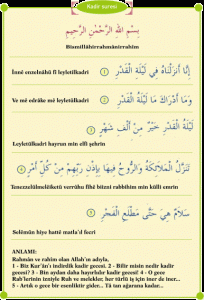 Kadir suresi
بِسْمِ اللهِ الرَّحْمٰنِ الرَّحِيمِ
Bismillâhirrahmânirrahîm
إِنَّا أَنْزَلْنَاهُ فِي لَيْلَةِ الْقَدْرِ ١
İnnê enzelnêhü fî leyletülkadri
وَمَا أَدْرَاكَ مَا لَيْلَةُ الْقَدْرِ ٢
Ve mê edrâke mê leyletülkadri
لَيْلَةُ الْقَدْرِ خَيْرٌ مِنْ أَلْفِ شَهْرٍ ٣
Leyletülkadri hayrun min elfi şehrin
تَنَزَّلُ الْمَلَائِكَةُ وَالرُّوحُ فِيهَا بِإِذْنِ رَبِّهِمْ مِنْ كُلِّ أَمْرٍ ٤
Tenezzelülmelêiketü verrûhu fîhê biizni rabbihim min külli emrin
سَلَامٌ هِيَ حَتَّى مَطْلَعِ الْفَجْرِ ٥
Selêmün hiye hattê matla'il fecri
ANLAMI:
Rahmân ve rahim olan Allah'ın adıyla.
1 - Biz Kur'ân'ı indirdik kadir gecesi. 2 - Bilir misin nedir kadir
gecesi? 3 - Bin aydan daha hayırlıdır kadir gecesi! 4 - O gece
Rab'lerinin izniyle Ruh ve melekler, her türlü iş için iner de iner...
5 - Artık o gece bir esenliktir gider.. Tâ tan ağarana kadar...